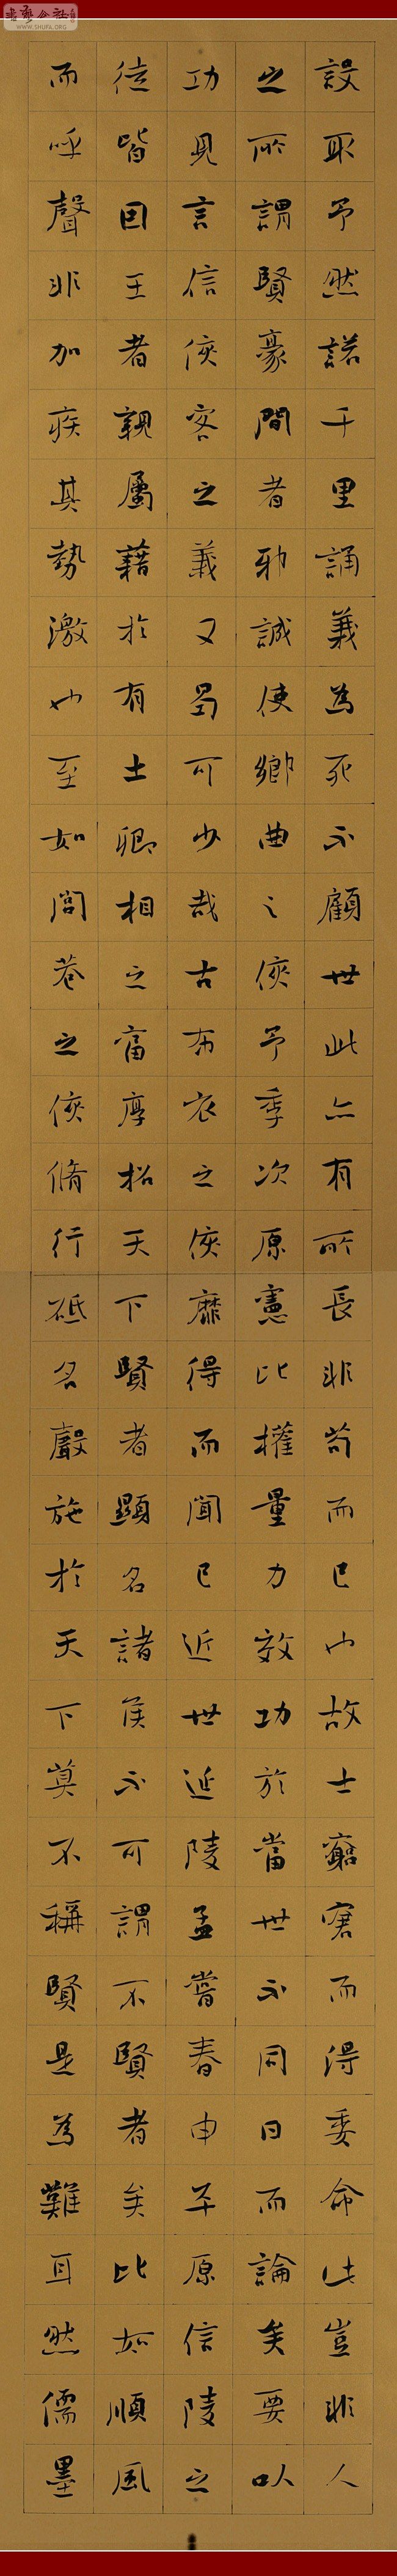 設取予然諾千里誦義為死不顧世此亦有所長非苟而已也故士窮窘而得委命此豈非人
之所謂賢豪間者邪誠使鄉曲之俠予季次原憲比權量力效功於當世不同日而論矣要以
功見言信俠客之義又曷可少哉古布衣之俠靡得而聞已近世延陵孟嘗春申平原信陵之
徒皆因王者親屬藉於有土卿相之富厚招天下賢者顯名諸侯不可謂不賢者矣比如順風
而呼聲非加疾其勢激也至如閭巷之俠脩行砥名聲施於天下莫不稱賢是為難耳然儒墨
書藝公社
WWW.SHUFA.ORG